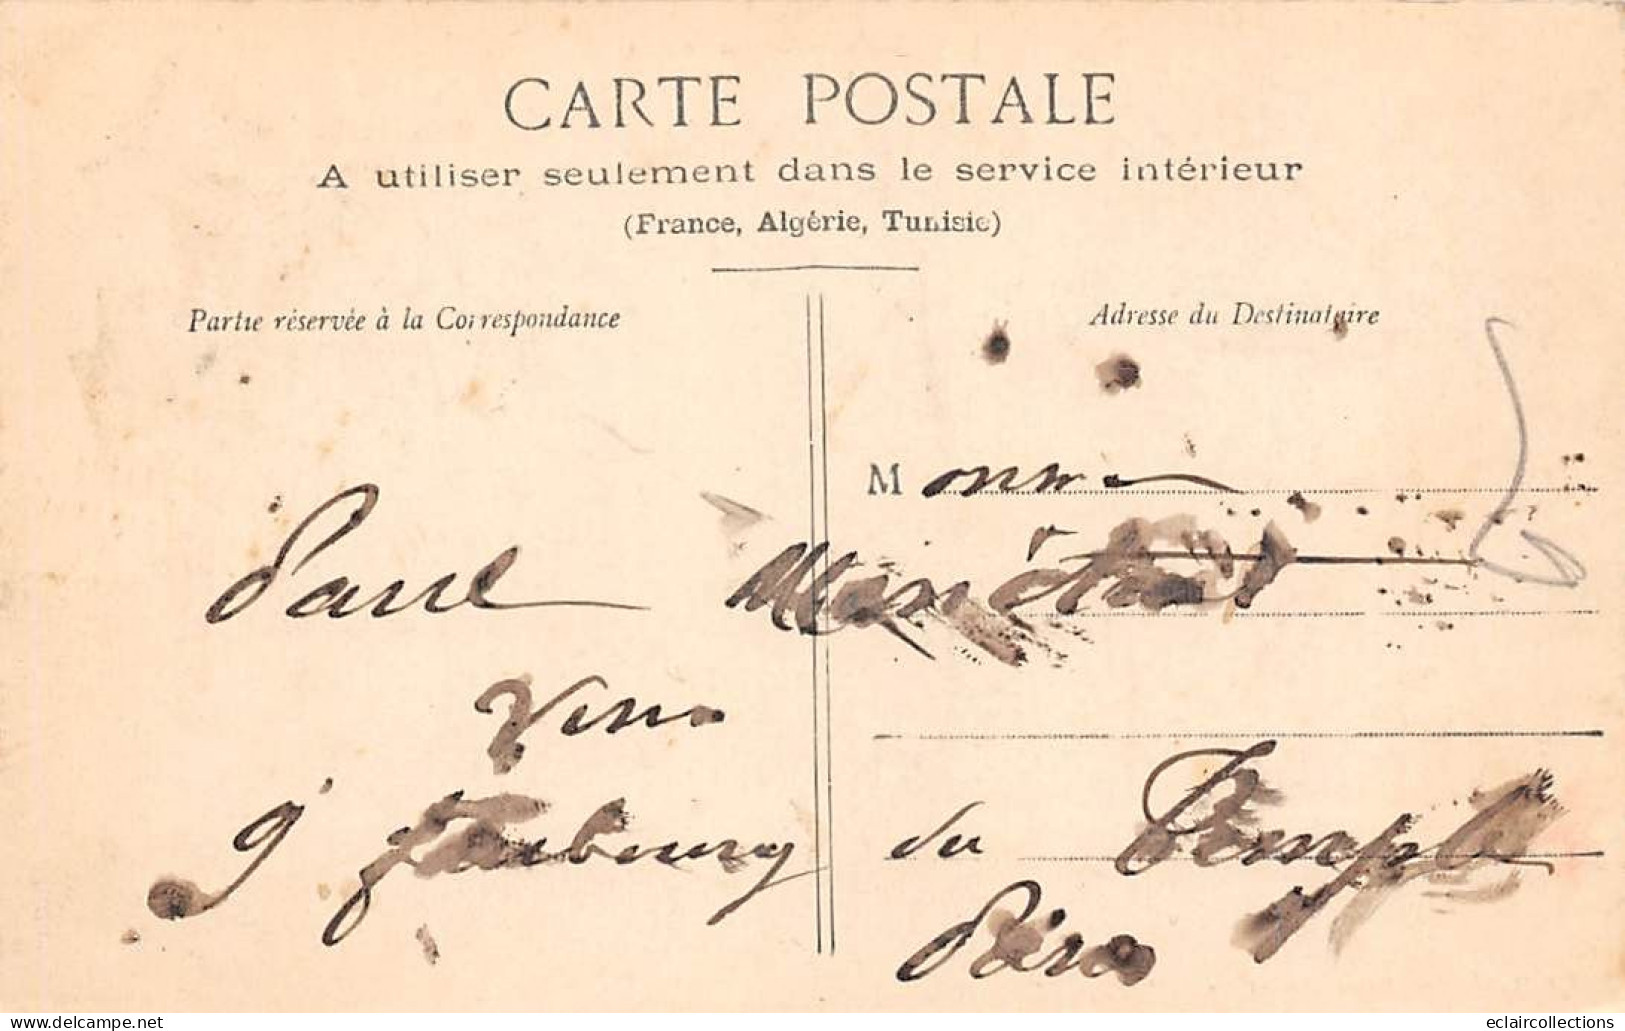 CARTE POSTALE
A utiliser seulement dans le service intérieur
(France, Algérie, Tunisie)
Partie réservée à la Correspondance
Adresse du Destinataire
Paul
Vins
9 faubourg du Temple
Paris
www.delcampe.net
eclaircollections